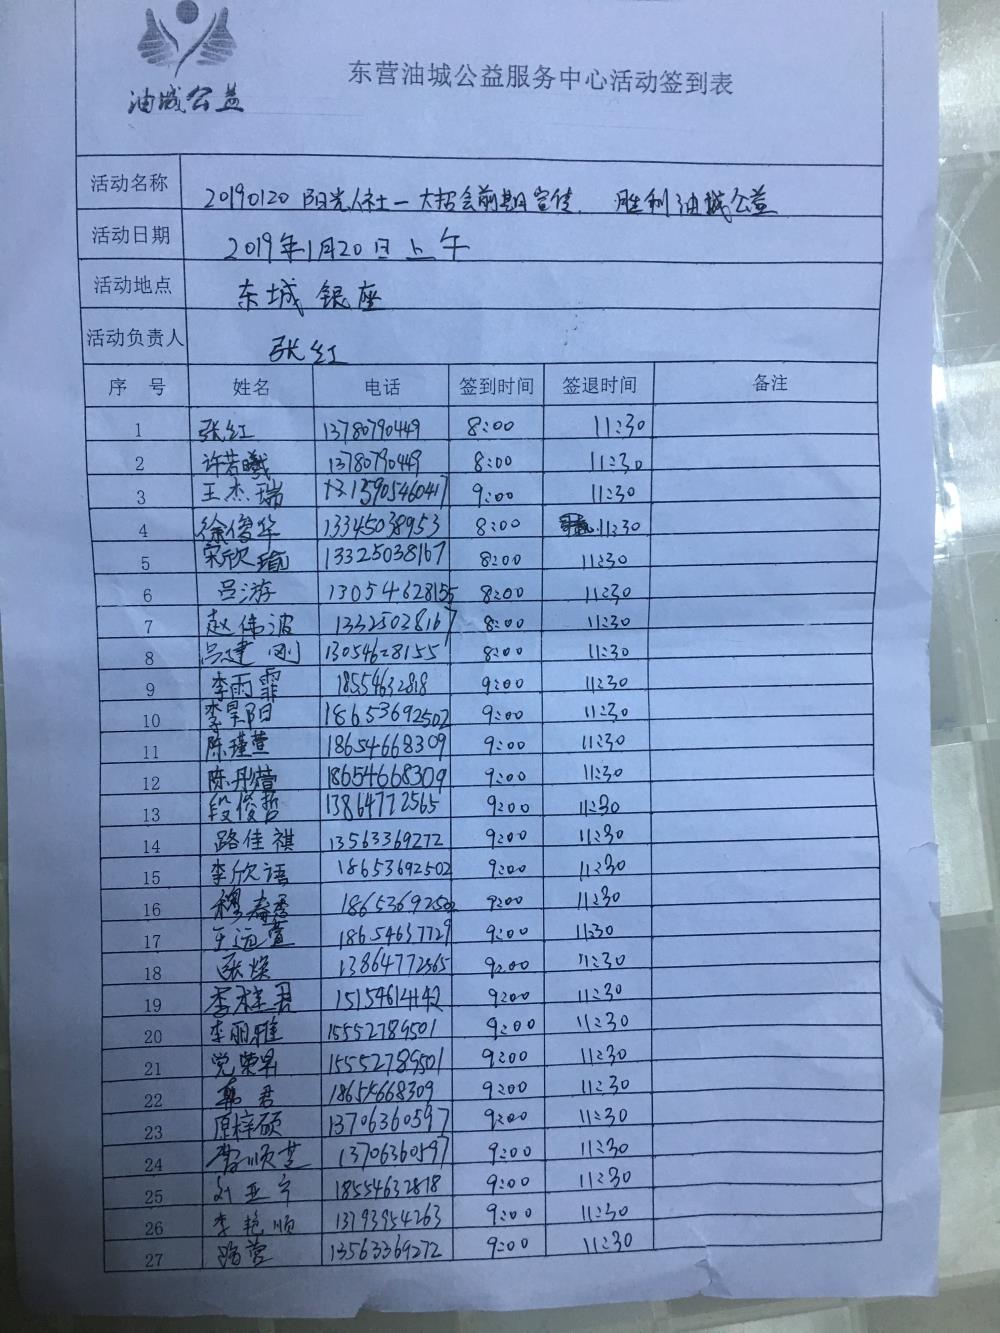 油城公益
东营油城公益服务中心活动签到表
活动名称 20190120 阳光人社一大招会前期宣传. 胜利油城公益
活动日期 2019年1月20日上午
活动地点 东城银座
活动负责人 张红
序 号 姓名 电话 签到时间 签退时间 备注
1 张红 13780790449 8:00 11:30
2 许若曦 13780790449 8:00 11:30
3 王杰瑞 15905460417 9:00 11:30
4 徐俊华 13345038953 8:00 11:30
5 宋欣瑜 13325038167 8:00 11:30
6 吕游 13054628155 8:00 11:30
7 赵伟波 13325028167 8:00 11:30
8 吕建刚 13054628155 8:00 11:30
9 李雨霏 18554632818 9:00 11:30
10 李昊阳 18653692502 9:00 11:30
11 陈瑾萱 18654668309 9:00 11:30
12 陈彤萱 18654668309 9:00 11:30
13 段俊哲 13864772565 9:00 11:30
14 路佳祺 13563369272 9:00 11:30
15 李欣语 18653692502 9:00 11:30
16 穆春香 18653692502 9:00 11:30
17 王涵萱 18654637729 9:00 11:30
18 张燦 13864772565 9:00 11:30
19 李梓君 15154614142 9:00 11:30
20 李丽雅 15552789501 9:00 11:30
21 党荣昇 15552789501 9:00 11:30
22 韩君 18654668309 9:00 11:30
23 原梓硕 13706360597 9:00 11:30
24 李顺芝 13706360597 9:00 11:30
25 刘亚宁 18554632818 9:00 11:30
26 李艳顺 13793954263 9:00 11:30
27 路营 13563369272 9:00 11:30